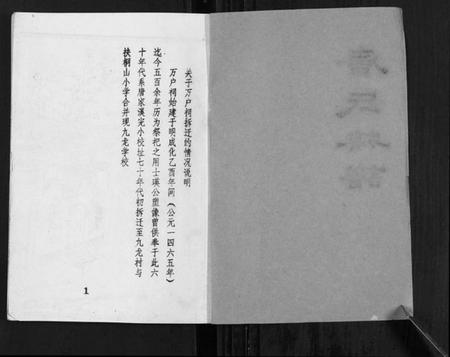 关于万户祠拆迁的情况说明
万户祠始建于明成化乙酉年间（公元一四六五年）
迄今五百余年历为祭祀之用士瑛公塑像曾供奉于此六
十年代系唐家汉完小校址七十年代初拆迁至九龙村与
扶桐山小学合并现九龙学校
1